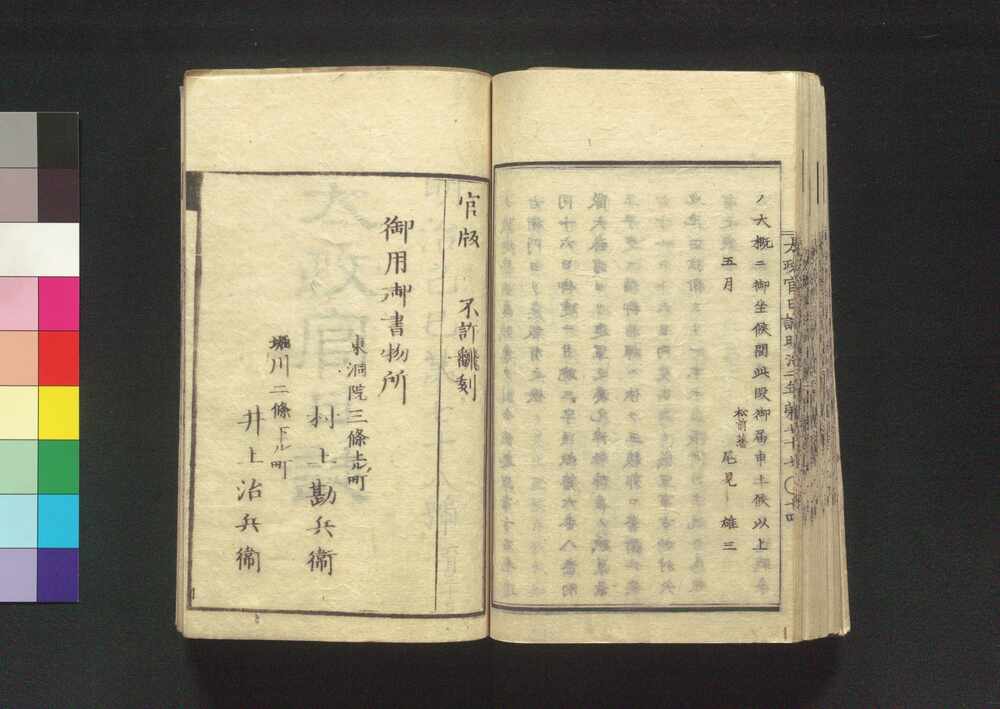 ノ大概ニ御坐候間此段御届申上候以上
五月
松前藩
尾見雄三
太政官日誌明治二年第七十七 〇十四
官版 不許翻刻
御用御書物所
東洞院三條上ル町
村上勘兵衛
堀川二條下ル町
井上治兵衛